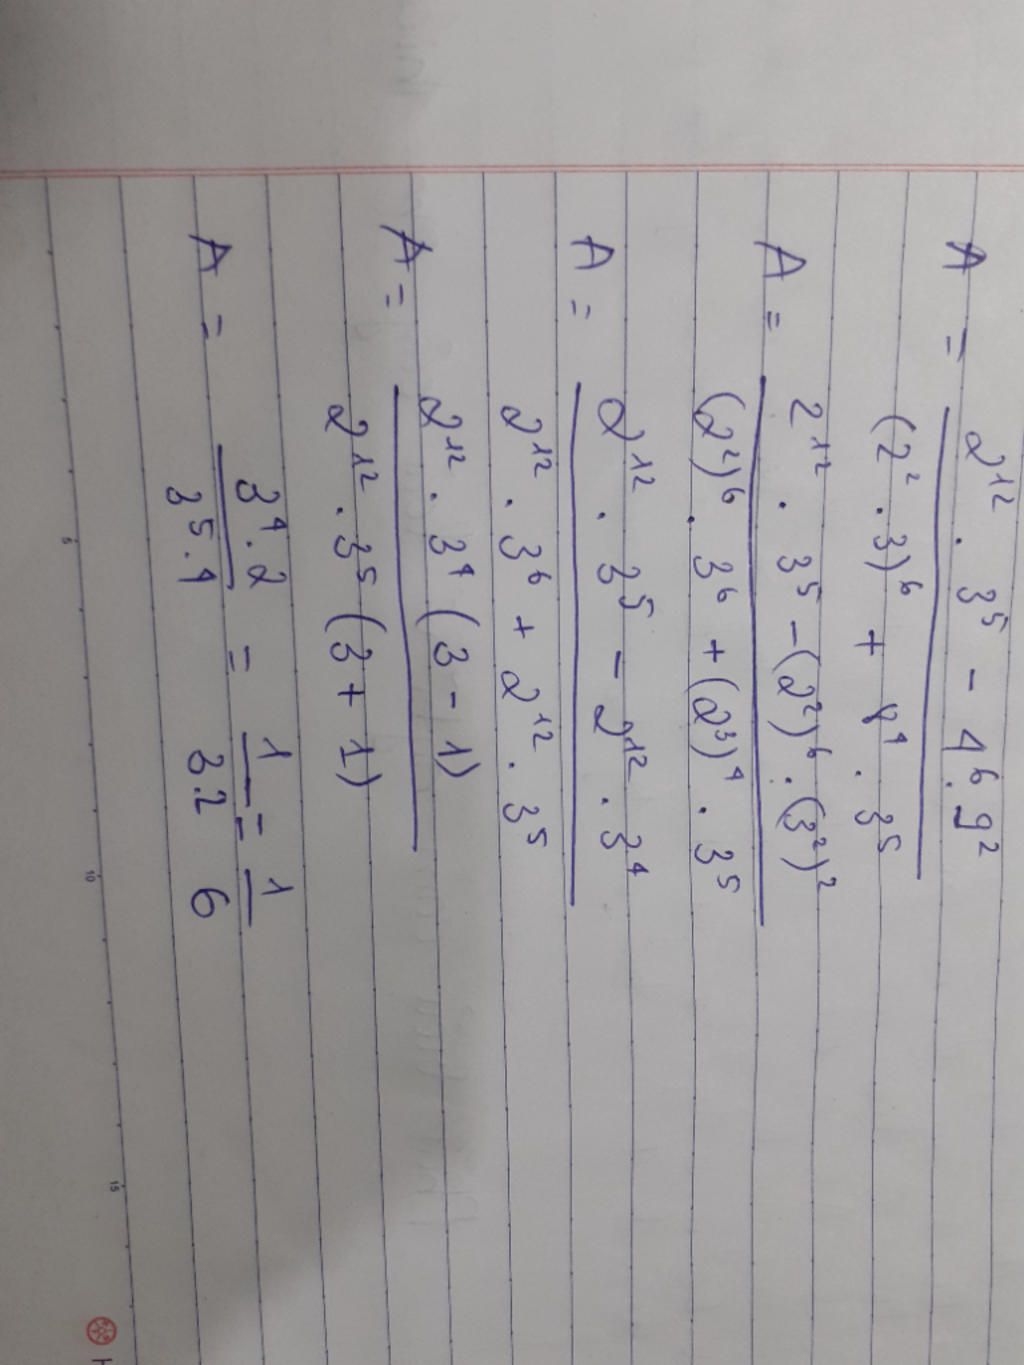 A = 2¹² . 3⁵ - 4⁶ . 9²
(2² . 3)⁶ + 8⁴ . 3⁵
A = 2¹² . 3⁵ - (2²)⁶ . (3²)²
(2²)⁶ . 3⁶ + (2³)⁴ . 3⁵
A = 2¹² . 3⁵ - 2¹² . 3⁴
2¹² . 3⁶ + 2¹² . 3⁵
A = 2¹² . 3⁴ (3 - 1)
2¹² . 3⁵ (3 + 1)
A = 3⁴ . 2 = 1 = 1
3⁵ . 4 3.2 6
5 10 15